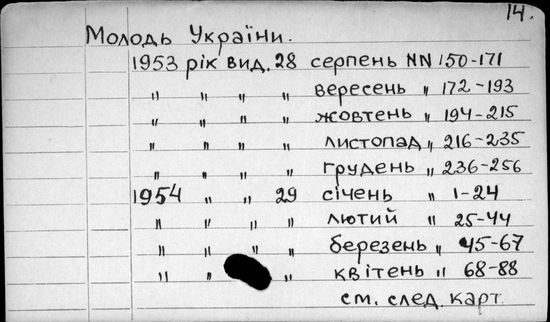 14.
Молодь України.
1953 рік вид. 28 серпень NN 150-171
" " " " вересень " 172-193
" " " " жовтень " 194-215
" " " " листопад " 216-235
" " " " грудень " 236-256
1954 " " 29 січень " 1-24
" " " " лютий " 25-44
" " " " березень " 45-67
" " " квітень " 68-88
см. след. карт.